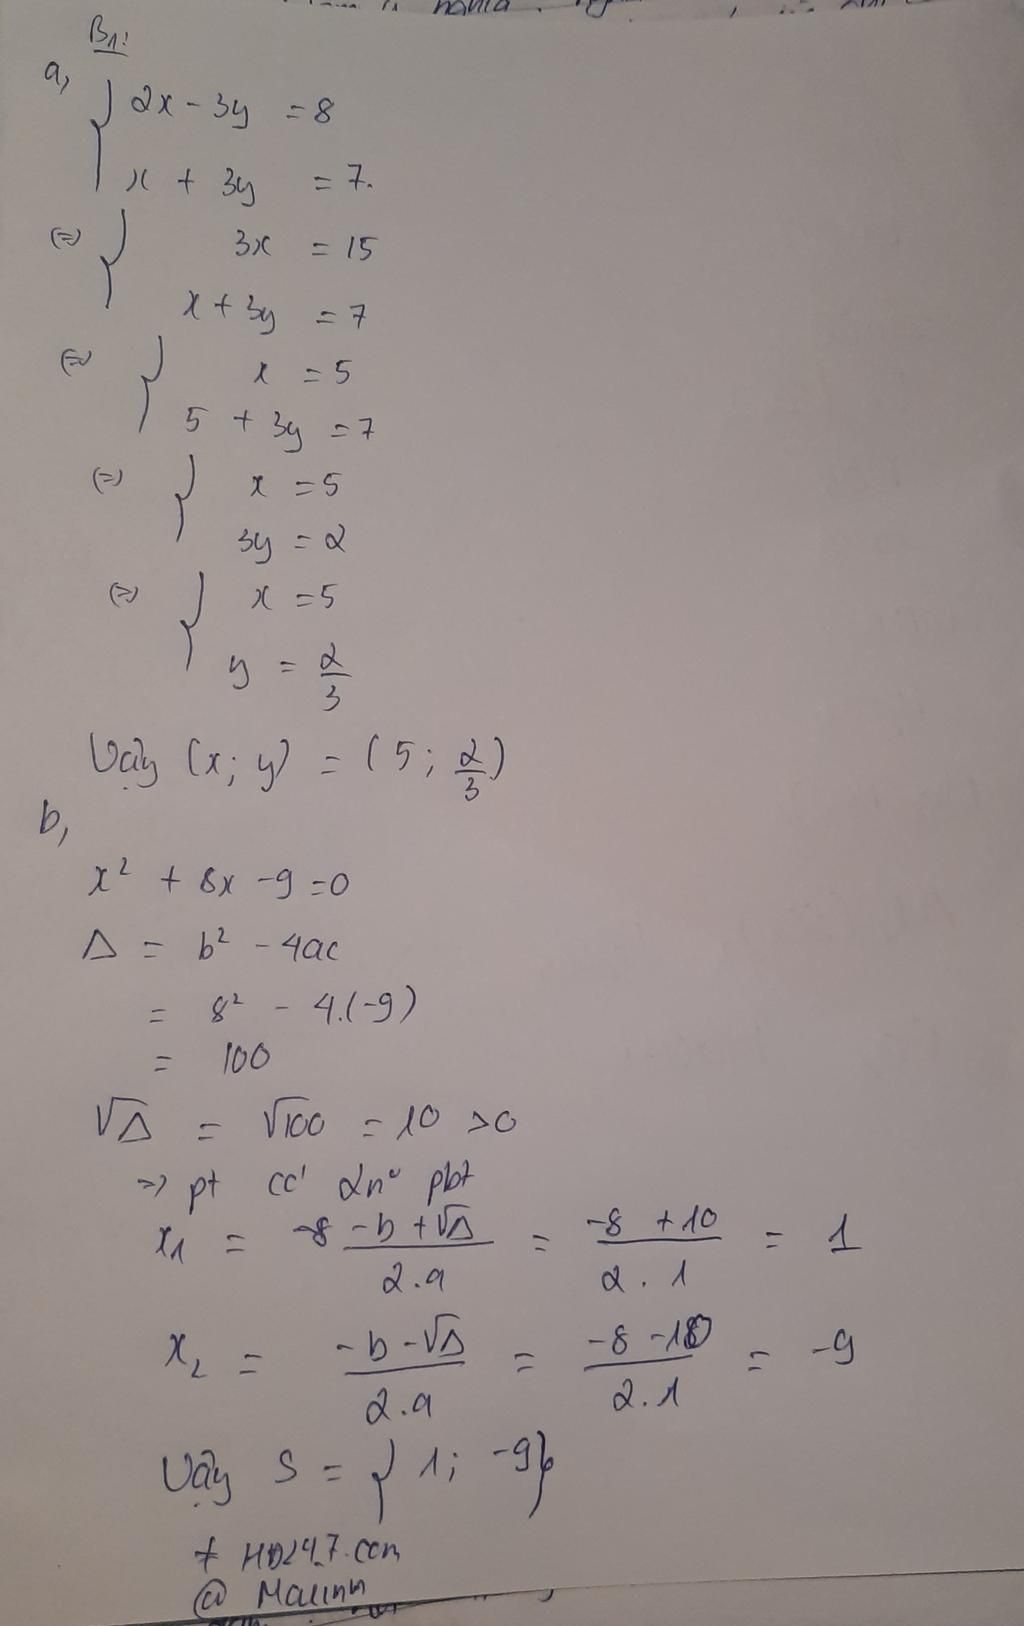 B1:
a,
2x - 3y = 8
x + 3y = 7.
(=) 3x = 15
x + 3y = 7
(=) x = 5
5 + 3y = 7
(=) x = 5
3y = 2
(=) x = 5
y = 2/3
Vậy (x; y) = (5; 2/3)
b,
x² + 8x - 9 = 0
Δ = b² - 4ac
= 8² - 4.(-9)
= 100
√Δ = √100 = 10 >0
=> pt có 2n° pbt
x₁ = -8 (-b + √Δ)/(2.a) = (-8 + 10)/(2.1) = 1
x₂ = (-b - √Δ)/(2.a) = (-8 - 10)/(2.1) = -9
Vậy S = { 1; -9}
@